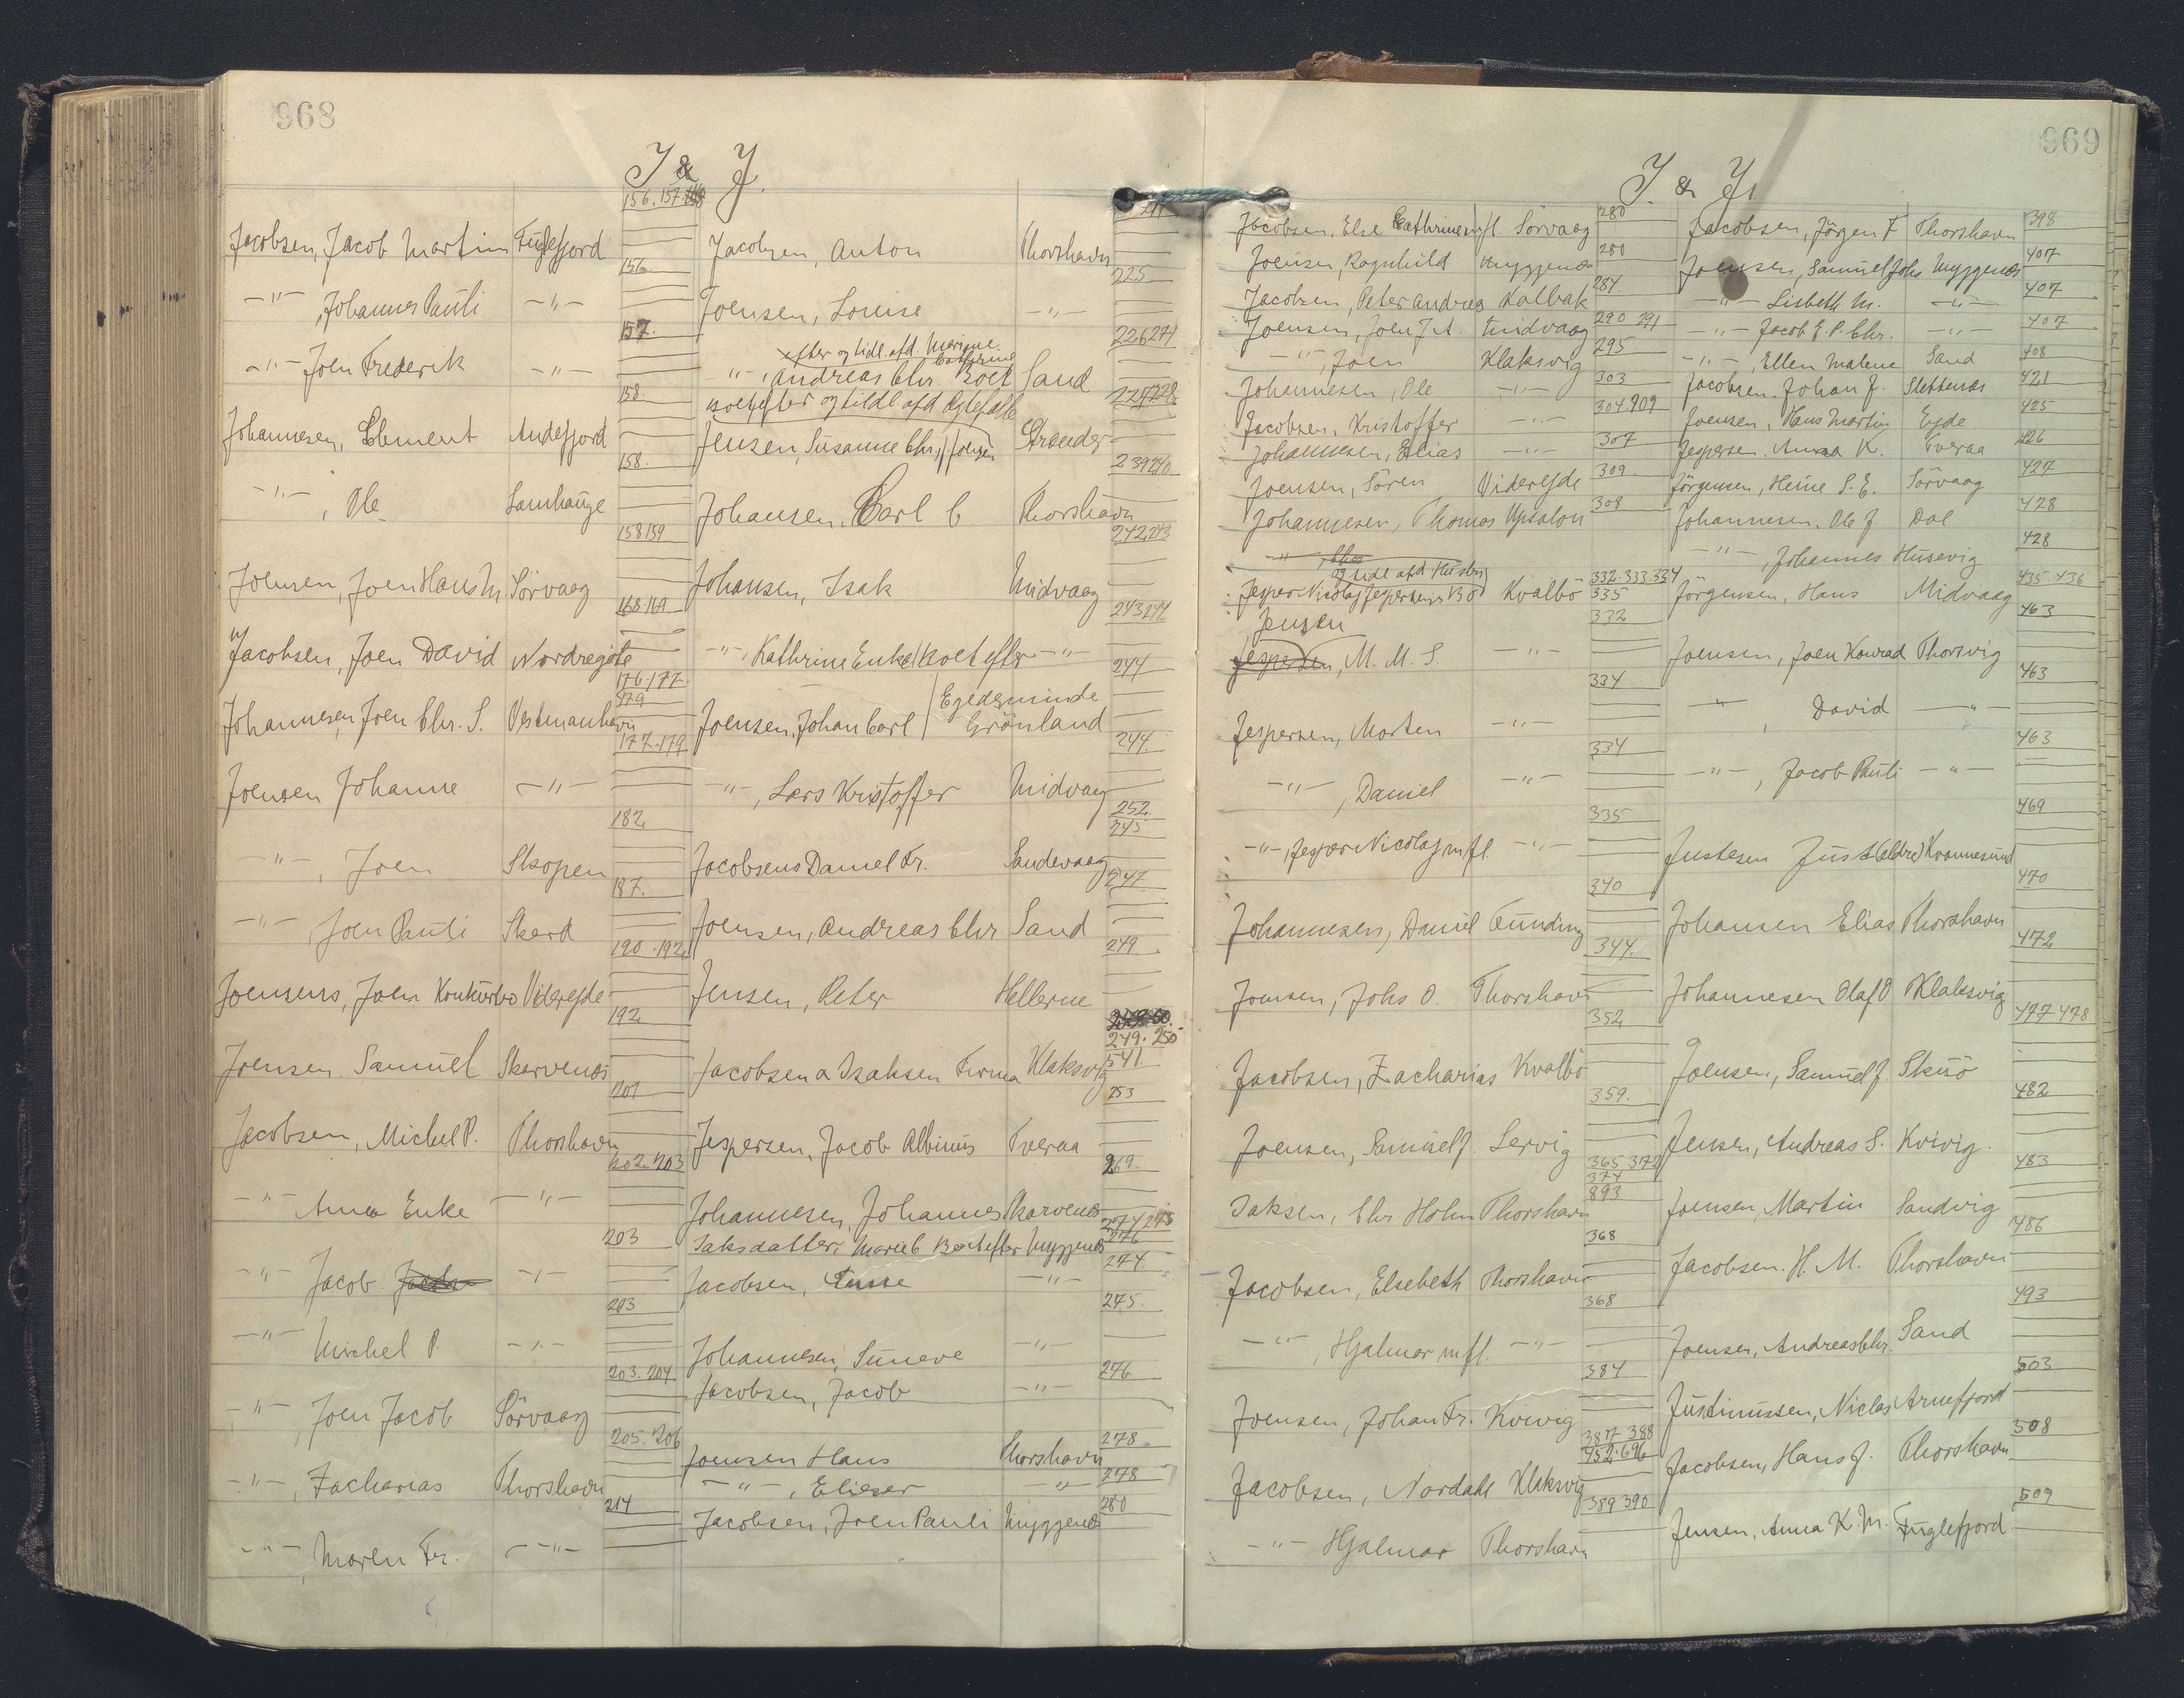 968
I & J.
156.157.
Jacobsen, Jacob Martin Fuglefjord
156.
-"-, Johannes Pauli -"-
157.
-"- Joen Frederik -"-
158.
Johannesen, Clement Andefjord
158.
-"-, Ole Lamhauge
158 159
Joensen, Joen Hans M. Sörvaag
168.169
Jacobsen, Joen David Nordregöte
176.177.
179
Johannesen, Joen Chr. S. Vestmanhavn
177.179
Joensen Johanne -"-
182
-"-, Joen Skopen
187.
-"- Joen Pauli Skard
190.192
Joensens, Joen Konkursbo Videreјde
192
Joensen Samuel Skarvenæs
201
Jacobsen, Michel P. Thorshavn
202.203
-"- Anna Enke -"-
203
-"- Jacob -"-
203
-"- Michel P. -"-
203.204
-"-, Joen Jacob Sörvaag
205.206
-"-, Zacharias Thorshavn
214
-"-, Maren Fr. -"-
Jacobsen, Anton Thorshavn
225
Joensen, Louise -"-
226 271
efter og tidl. afd. Marianne
Cathrine
-"-, Andreas Chr. Boet Sand
227 228
Boet efter og tidl afd Ægtefælle
Jensen, Susanne Chr. Joensen Strender
239 240
Johansen, Carl C Thorshavn
242 243
Johansen, Isak Midvaag
243 244
-"-, Kathrine Enke Boet efter -"-
244
Joensen, Johan Carl Egedesminde
Grönland
244
-"-, Lars Kristoffer Midvaag
252.
245
Jacobsens Daniel Fr. Sandevaag
247
Joensen, Andreas Chr Sand
249
Jensen, Peter Hellerne
249.250
541
Jacobsen a Isaksen Firma Klaksvig
253
Jespersen, Jacob Albinus Tveraa
269.
Johannesen, Johannes Skarvenæs
274 275
276
Isaksdatter, Marie C Boet efter Myggenæs
274
Jacobsen, Susse -"-
275.
Johannesen, Sunneve -"-
276.
Jacobsen, Jacob -"-
278
Joensen Hans Thorshavn
278
-"-, Elieser -"-
280
Jacobsen, Joen Pauli Myggenæs
969
I. & J.
280
Jacobsen, Else Cathrine m/fl. Sörvaag
280
Joensen, Ragnhild Myggenæs
284
Jacobsen, Peter Andreas Kalbak
290 291
Joensen, Joen J. A. Midvaag
295
-"-, Joen Klaksvig
303
Johannesen, Ole -"-
304.909
Jacobsen, Kristoffer -"-
307
Johannesen, Elias -"-
309
Joensen, Sören Videreјde
308
Johannesen, Thomas Upsalon
og tidl afd Hustru
332.333 334
Jesper Nicolaj Jespersens Bo Kvalbö 335
Jensen 332
Jespersen, M. M. S. -"-
334
Jespersen, Morten -"-
334
-"-, Daniel -"-
335
-"-, Jesper Nicolaj m/fl. -"-
340
Johannesen, Daniel Funding
344.
Joensen, Johs O. Thorshavn
352
Jacobsen, Zacharias Kvalbö
359.
Joensen, Samuel J. Lervig
365 372
374
893
Isaksen, Chr Holm Thorshavn
368
Jacobsen, Elsebeth Thorshavn
368
-"-, Hjalmar m/fl. -"-
384
Joensen, Johan Fr. Kvivig
387 388
452.696
Jacobsen, Nordahl Klaksvig
389 390
-"- Hjalmar Thorshavn
398
Jacobsen, Jörgen F Thorshavn
407
Joensen, Samuel Johs Myggenæs
407
-"- Lisbeth M. -"-
407
-"- Jacob E. P. Chr. -"-
408
-"-, Ellen Malene Sand
421
Jacobsen Johan J. Slettenæs
425
Joensen, Hans Martin Ejde
426
Jespersen, Anna K. Tveraa
427
Jörgensen, Heine S. E. Sörvaag
428
Johannesen, Ole J. Dal
428
-"-, Johannes Husevig
435 436
Jörgensen, Hans Midvaag
463
Joensen, Joen Konrad Thorsvig
463
", David -"-
463
-"-, Jacob Pauli -"-
469
Justesen Just (ældre) Kvannesund
470
Johansen Elias Thorshavn
472
Johannesen Olaf O Klaksvig
477 478
Joensen, Samuel J. Skuö
482
Jensen, Andreas S. Kvivig.
483
Joensen, Martin Sandvig
486
Jacobsen. H. M. Thorshavn
493
Joensen, Andreas Chr. Sand
503
Justinussen, Niclas Arnefjord
508
Jacobsen, Hans J. Thorshavn
509
Jensen, Anna K. M. Fuglefjord